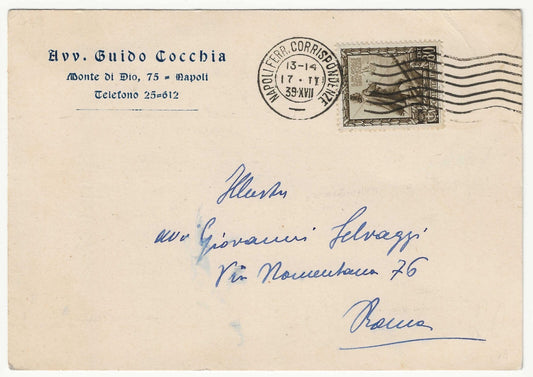 Avv. Guido Cocchia
Monte di Dio, 75 = Napoli
Telefono 25=612
NAPOLI FERR. CORRISPONDENZE
13-14
17 · II
39·XVII
Illustre
avv Giovanni Selvaggi
Via Nomentana 76
Roma